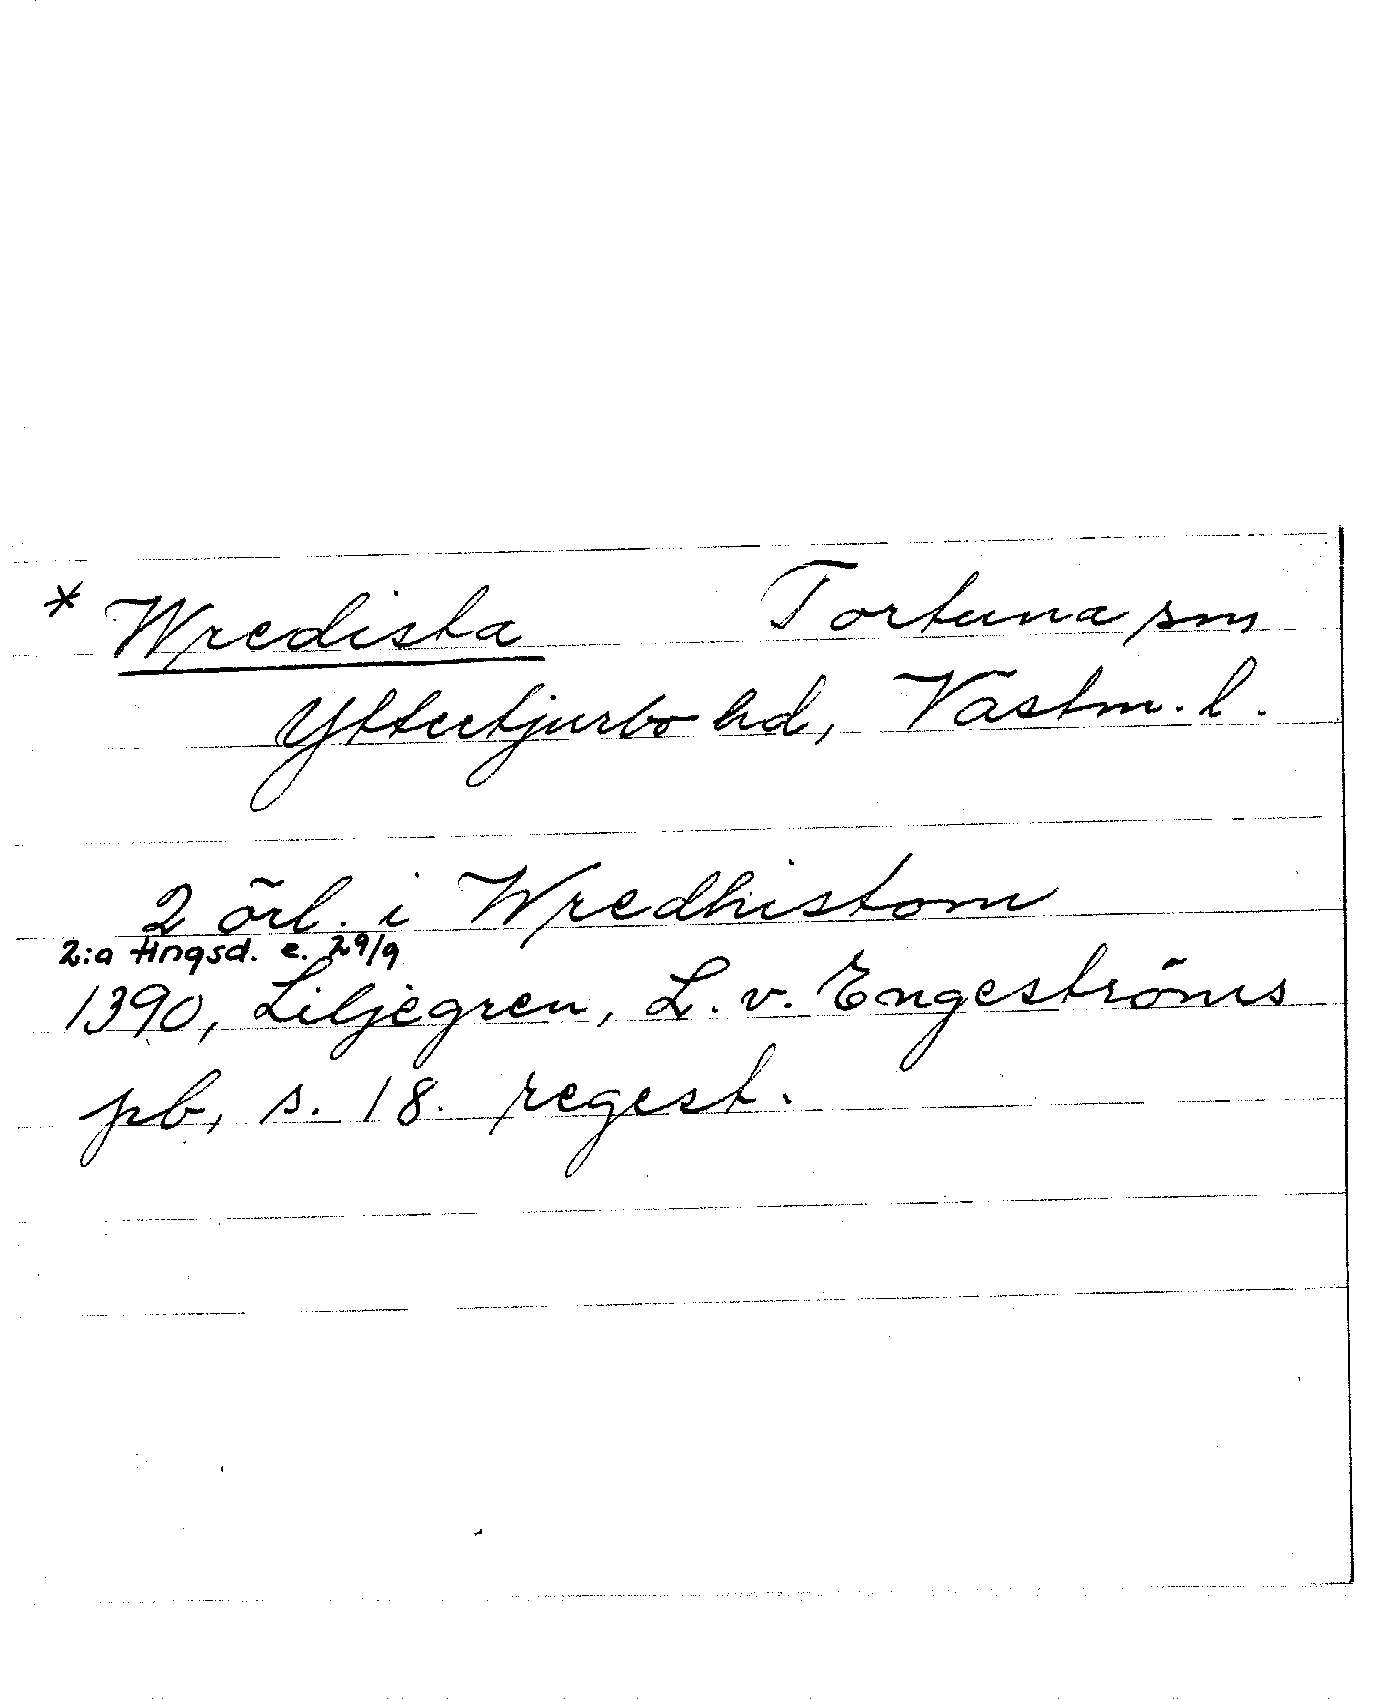 * Wredista Tortuna sn
Yttertjurbo hd, Västm. l.
2 örl. i Wredhistom
2:a tingsd. e. 29/9
1390, Liljegren, L. v. Engeströms
pb, s. 18. regest.